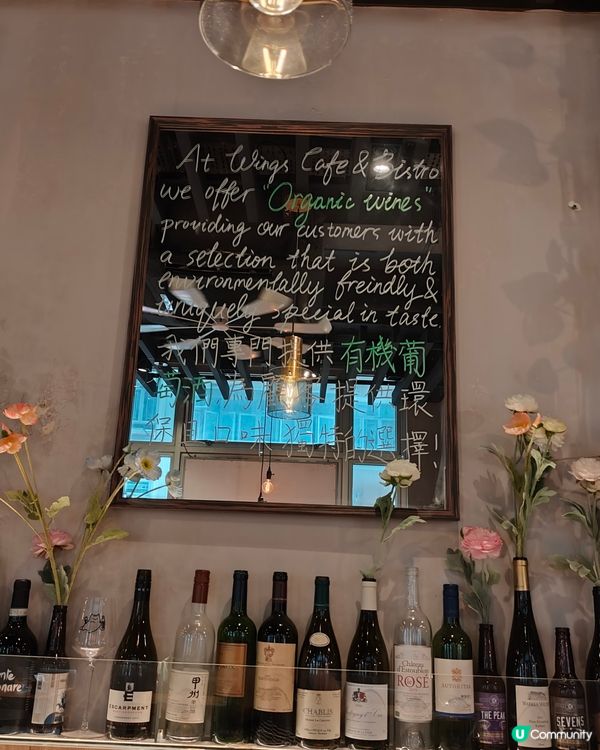 At Wings Cafe & Bistro
we offer "Organic wines"
providing our customers with
a selection that is both
environmentally freindly &
uniquely special in taste.
我們專門提供有機葡
萄酒為顧客提供環
保且口味獨特的選擇!
ESCARPMENT
甲州
CHABLIS
Château
ROSÉ
THE PEAK
SEVENS
U Community